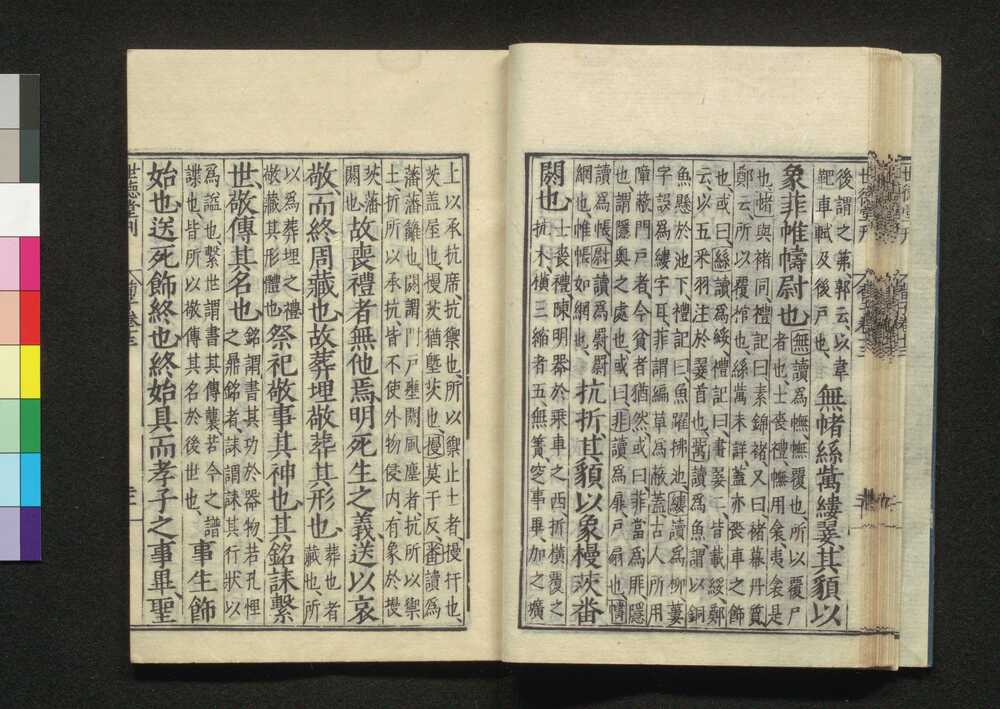 後謂之第郭云以韋
靶車軾及後戸也
無帾絲歶縷翣其䫉以
象菲帷幬尉也
無讀為幠幠覆也所以覆尸
者也士喪禮幠用斂衾夷衾是
也帾與褚同禮記曰素錦褚又曰褚幕丹質
鄭云所以覆棺也絲歶未詳蓋亦喪車之飾
也或曰絲讀為綏禮記曰畫翣二皆載綏鄭
云以五采羽注於翣首也歶讀為魚謂以銅
魚懸於池下禮記曰魚躍拂池縷讀為柳蔞
字誤為縷字耳菲謂編草為蔽蓋古人所用
障蔽門戸者今貧者猶然或曰菲當為厞隱
也謂隱奥之處也或曰菲讀為扉戸扇也幬
讀為帳尉讀為罻罻
網也帷帳如網也
抗折其䫉以象槾茨番
閼也
士喪禮陳明器於乗車之西折横覆之
抗木横三縮者五無簀窆事畢加之壙
上以承抗席抗禦也所以禦止士者槾扞也
茨盖屋也槾茨猶塈茨也槾莫干反番讀為
藩藩籬也閼謂門戸壅閼風塵者抗所以禦
土折所以承抗皆不使外物侵内有象於槾
茨藩
閼也
故喪禮者無他焉明死生之義送以哀
敬而終周藏也故葬埋敬葬其形也
葬也者
藏也所
以為葬埋之禮
敬藏其形體也
祭祀敬事其神也其銘誄繫
世敬傳其名也
銘謂書其功於器物若孔悝
之鼎銘者誄謂誄其行狀以
為謚也繫世謂書其傳襲若今之譜
諜也皆所以敬傳其名於後世也
事生飾
始也送死飾終也終始具而孝子之事畢聖
世德堂刊